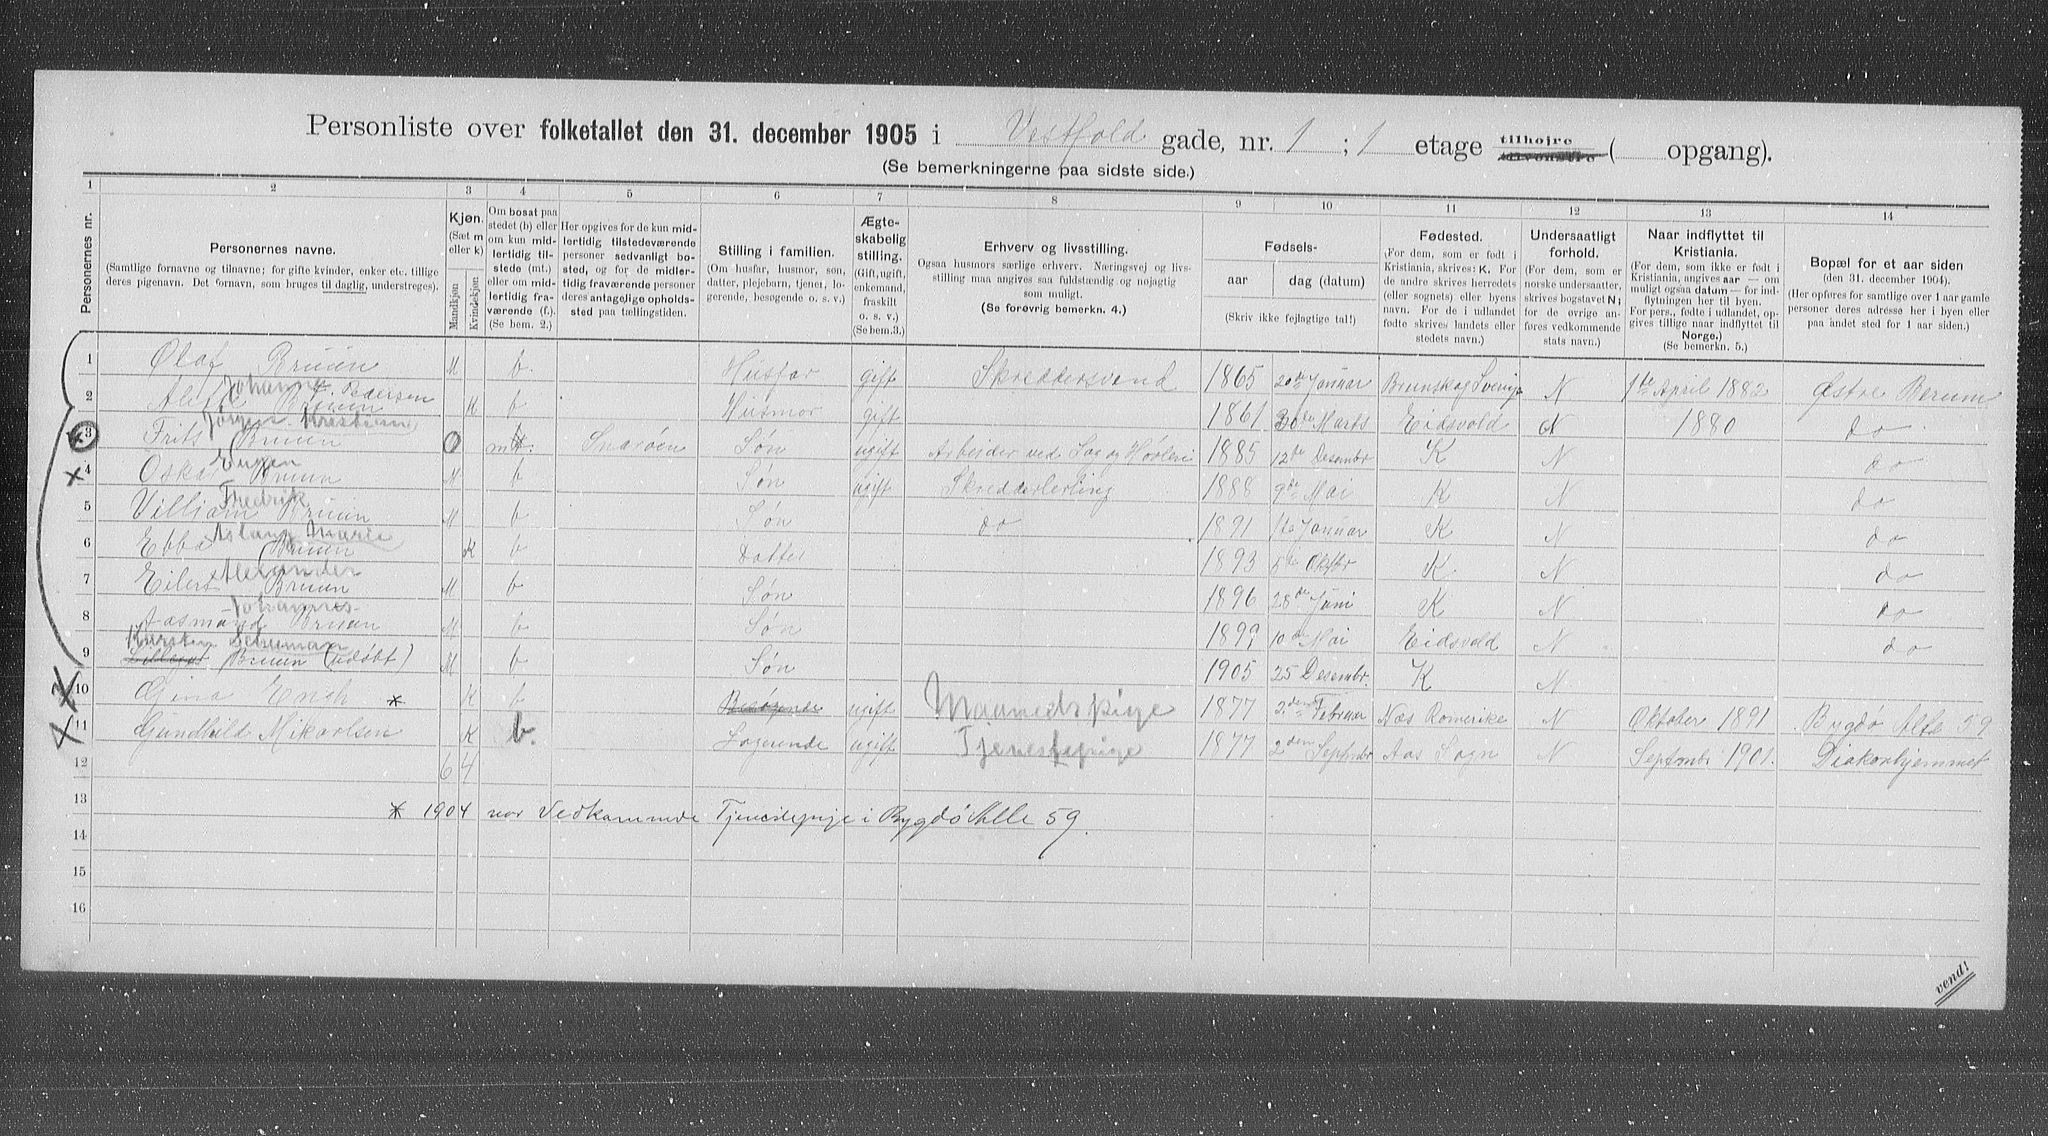 Personliste over folketallet den 31. december 1905 i Vestfold gade, nr. 1 ; 1 etage tilhøjre ( opgang).
(Se bemerkningerne paa sidste side.)
1 2 3 4 5 6 7 8 9 10 11 12 13 14
Personernes nr.
Personernes navne.
(Samtlige fornavne og tilnavne; for gifte kvinder, enker etc. tillige
deres pigenavn. Det fornavn, som bruges til daglig, understreges).
Kjøn.
(Sæt m
eller k)
Mandkjøn
Kvindekjøn.
Om bosat paa
stedet (b) eller
om kun mid-
lertidig til-
stede (mt.)
eller om mid-
lertidig fra-
værende (f.).
(Se bem. 2.)
Her opgives for de kun mid-
lertidig tilstedeværende
personer sedvanlig bo-
sted, og for de midler-
tidig fraværende personer
deres antagelige opholds-
sted paa tællingstiden.
Stilling i familien.
(Om husfar, husmor, søn,
datter, plejebarn, tjener, lo-
gerende, besøgende o. s. v.)
Ægte-
skabelig
stilling.
(Gift, ugift,
enkemand,
fraskilt
o. s. v.)
(Se bem. 3.)
Erhverv og livsstilling.
Ogsaa husmors særlige erhverv. Næringsvej og livs-
stilling maa angives saa fuldstændig og nøjagtig
som muligt.
(Se forøvrig bemerkn. 4.)
Fødsels-
aar dag (datum)
(Skriv ikke fejlagtige tal!)
Fødested.
(For dem, som er født i
Kristiania, skrives: K. For
de andre skrives herredets
(eller sognets) eller byens
navn. For de i udlandet
fødte skrives landets eller
stedets navn.)
Undersaatligt
forhold.
(For dem, som er
norske undersaatter,
skrives bogstavet N;
for de øvrige an-
føres vedkommende
stats navn.)
Naar indflyttet til
Kristiania.
(For dem, som ikke er født i
Kristiania, angives aar — om
muligt ogsaa datum — for ind-
flytningen her til byen.
For pers., fødte i udlandet, op-
gives tillige naar indflyttet til
Norge.)
(Se bemerkn. 5.)
Bopæl for et aar siden
(den 31. december 1904).
(Her opføres for samtlige over 1 aar gamle
personer deres adresse her i byen eller
paa andet sted for 1 aar siden.)
1 Olaf Bruun M b. Husfar gift Skreddersvend 1865 20de Januar Brunskog Sverige N 1ste April 1882 Østre Berum
Johanne f. Pedersen
2 Bruun K b Husmor gift 1861 30de Marts Eidsvold N 1880 do
Jørgen Kristian
3 Frits Bruun mt. Snarøen Søn ugift Arbejder ved Sag og Høvleri 1885 12de Desembr K N do
Eugen
4 Oskar Bruun M b Søn ugift Skredderlerling 1888 9de Mai K N do
Fredrik
5 Villiam Bruun M b Søn do 1891 Januar K N do
Aslaug Marie
6 Ebba Bruun K b Datter 1893 5te Oktbr K N do
Alexander
7 Eilert Bruun M b Søn 1896 28de Juni K N do
Johannes
8 Aasmund Bruun M b Søn 1899 10de Mai Eidsvold N do
Karsten Scheuman
9 Bruun (udøbt) M b Søn 1905 25 Desembr. K N
10 Gina Engh * K b Besøgende ugift Maanedspige 1877 2den Februar Næs Romerike N Oktober 1891 Bygdø Alle 59
11 Gundhild Mikarlsen K b. Logerende ugift Tjenestepige 1877 2den Septembr Aas Sogn N Septmbr 1901. Diakonhjemmet
12 6 4
13 * 1904 var Vedkommende Tjenestepige i Bygdø Alle 59.
14
15
16
vend!